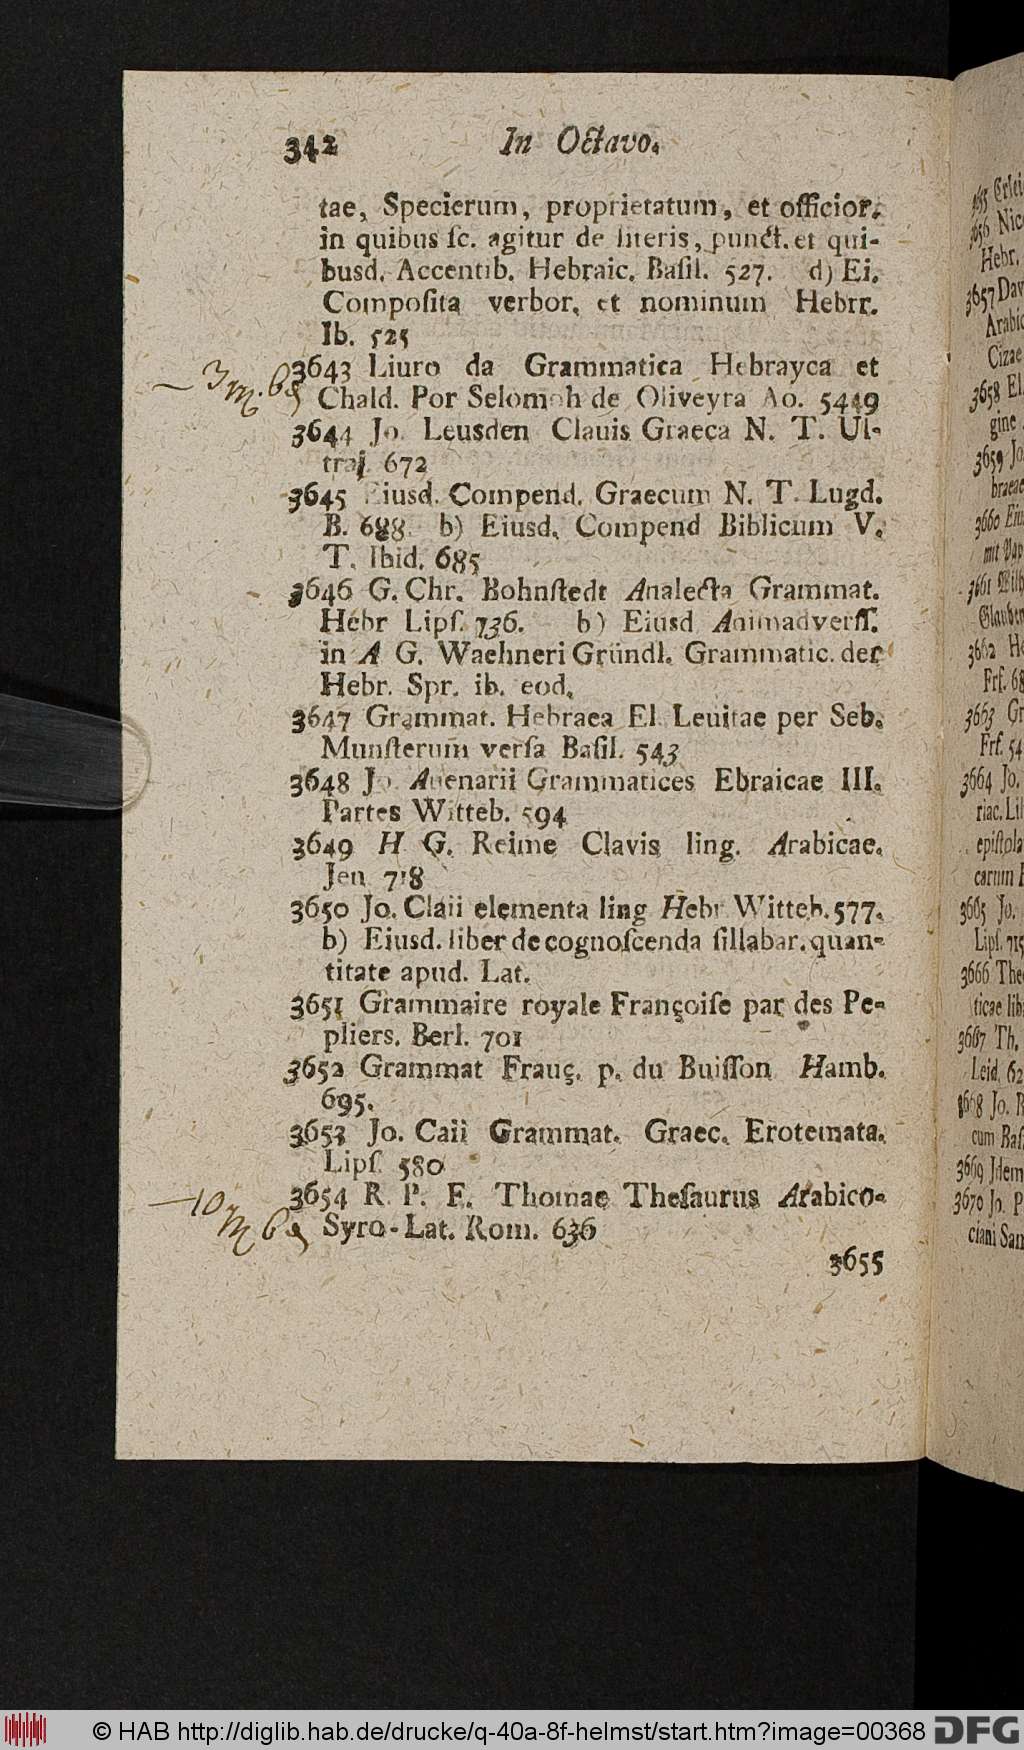 342 In Octavo.
tae, Specierum, proprietatum, et officior.
in quibus ſc. agitur de literis, punct. et qui-
busd. Accentib. Hebraic. Baſil. 527. d) Ei.
Compoſita verbor. et nominum Hebrr.
Ib. 525
3643 Liuro da Grammatica Hebrayca et
Chald. Por Selomoh de Oliveyra Ao. 5449
3644 Jo. Leusden Clauis Graeca N. T. Ul-
traj. 672
3645 Eiusd. Compend. Graecum N. T. Lugd.
B. 688. b) Eiusd. Compend Biblicum V.
T. Ibid. 685
3646 G. Chr. Bohnſtedt Analecta Grammat.
Hebr Lipſ. 736. b) Eiusd Animadverſſ.
in A G. Waehneri Gründl. Grammatic. der
Hebr. Spr. ib. eod.
3647 Grammat. Hebraea El. Leuitae per Seb.
Munſterum verſa Baſil. 543
3648 Jo. Auenarii Grammatices Ebraicae III.
Partes Witteb. 594
3649 H G. Reime Clavis ling. Arabicae.
Jen 718
3650 Jo. Claii elementa ling Hebr Witteb. 577.
b) Eiusd. liber de cognoſcenda ſillabar. quan-
titate apud. Lat.
3651 Grammaire royale Françoiſe par des Pe-
pliers. Berl. 701
3652 Grammat Frauç. p. du Buiſſon Hamb.
695.
3653 Jo. Caii Grammat. Graec. Erotemata.
Lipſ. 580
3654 R. P. F. Thomae Theſaurus Arabico-
Syro-Lat. Rom. 636
3655
— 3 m. 6 g
— 10 m 6 g
3657 Dav
Arabic
Cizae
3658 El.
gine
3659 Jo
braeae
3660 Eiu
mit Vap
Glauben
3662 He
Frf. 68
3663 Gr
Frf. 54
3664 Jo.
riac. Lit
epiſtola
carum
3665 Jo.
Lipſ. 715
3666 The
ticae lib
3667 Th.
Leid. 62
3668 Jo. R
cum Baſ
3669 Idem
3670 Jo. P
ciani Sam
© HAB http://diglib.hab.de/drucke/q-40a-8f-helmst/start.htm?image=00368 DFG